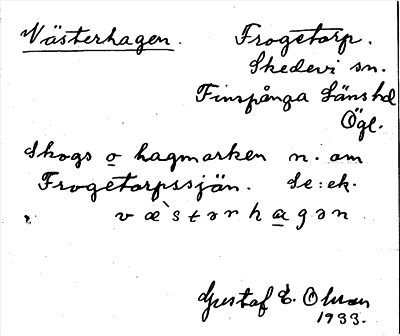 Västerhagen. Frogetorp.
Skedevi sn.
Finspånga Länshd
Ögl.
Skogs o hagmarken n. om
Frogetorpssjön. Se: ek.
væ̀stərhagən
Gustaf E. Olsson
1933.